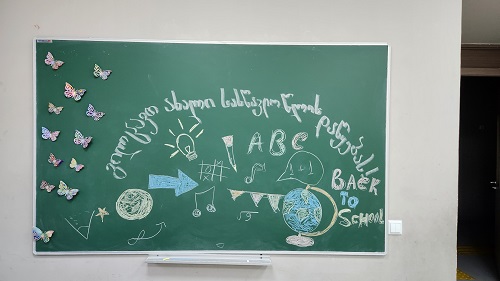 გილოცავთ ახალი სასწავლო წლის დაწყებას!
ABC
1+1
√9
BACK
TO
SCHOOL